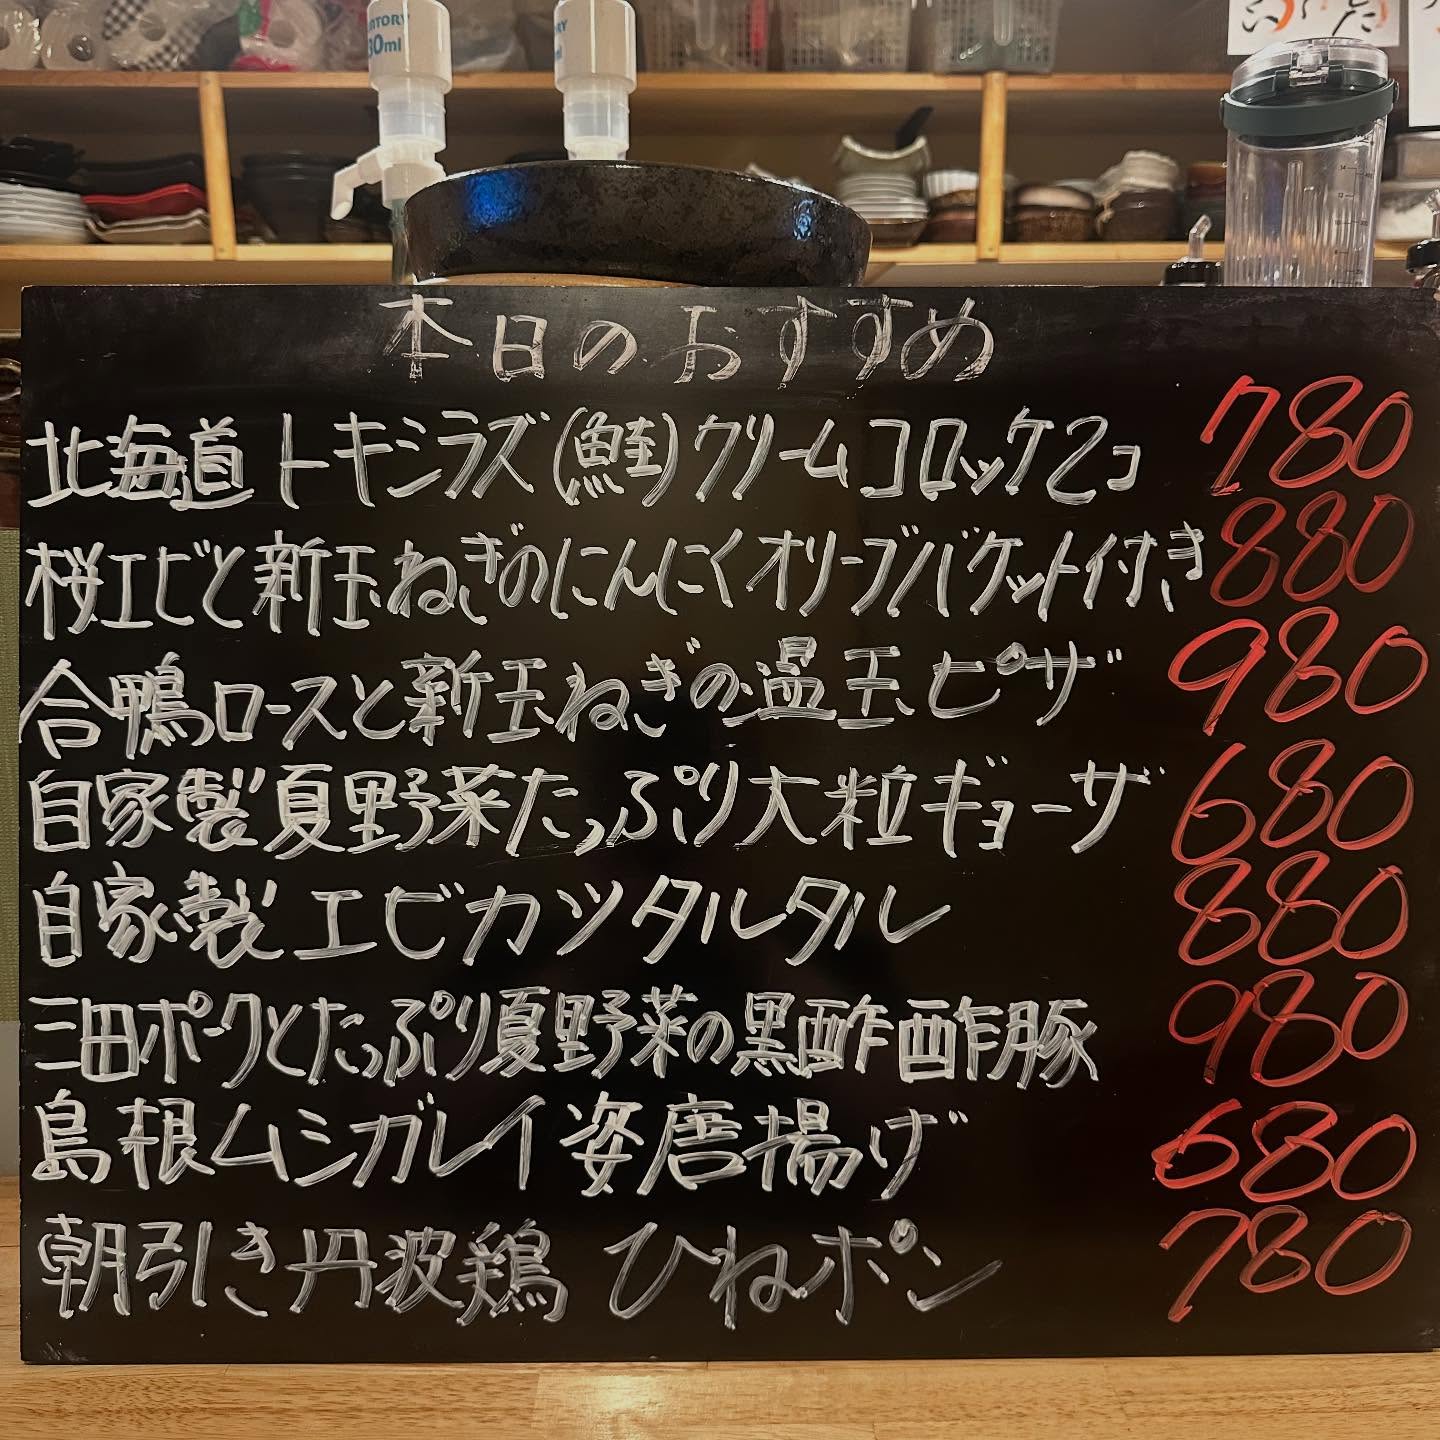 UNTORY
30ml
本日のおすすめ
北海道トキシラズ(鮭)クリームコロッケ2コ 780
桜エビと新玉ねぎのにんにくオリーブバケット付き 880
合鴨ロースと新玉ねぎの温玉ピザ 980
自家製夏野菜たっぷり大粒ギョーザ 680
自家製エビカツタルタル 880
三田ポークとたっぷり夏野菜の黒酢酢豚 980
島根ムシガレイ姿唐揚げ 680
朝引き丹波鶏 ひねポン 780